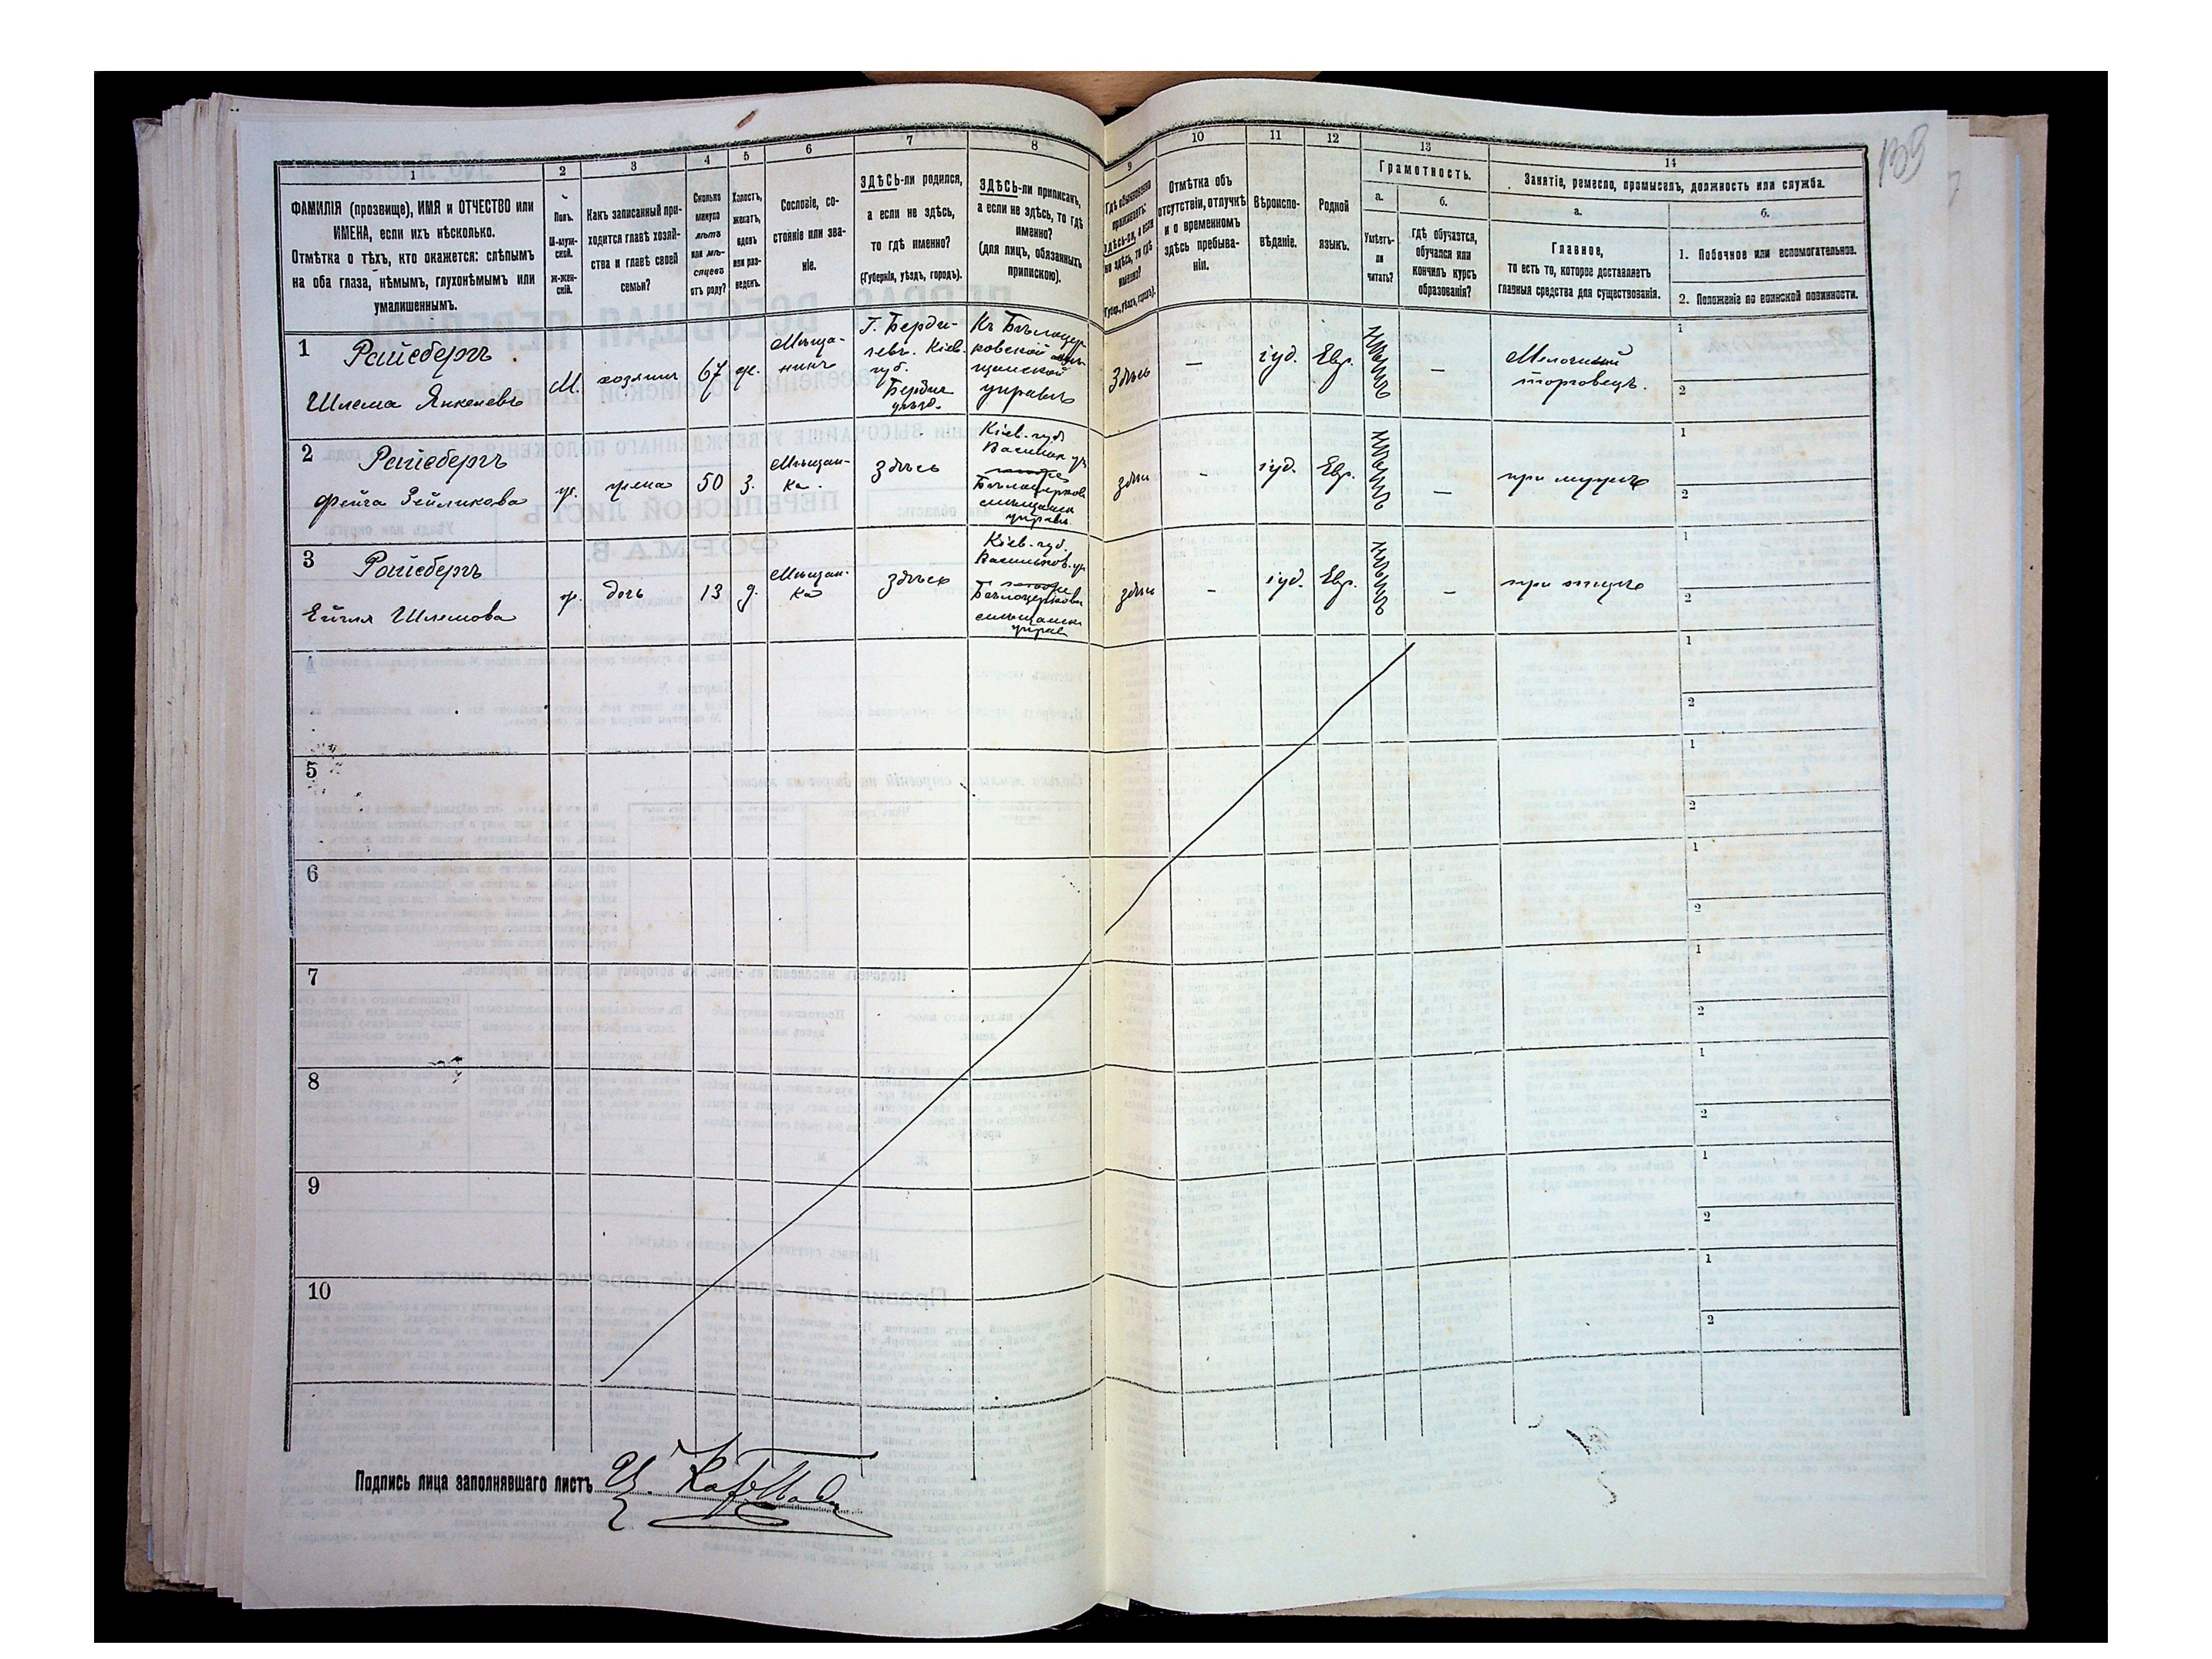 139
1
2
3
4
5
6
7
8
9
10
11
12
13
14
ФАМИЛІЯ (прозвище), ИМЯ и ОТЧЕСТВО или
ИМЕНА, если ихъ нѣсколько.
Отмѣтка о тѣхъ, кто окажется: слѣпымъ
на оба глаза, нѣмымъ, глухонѣмымъ или
умалишеннымъ.
Полъ.
М-муж-
ской.
Ж-жен-
скій.
Какъ записанный при-
ходится главѣ хозяй-
ства и главѣ своей
семьи?
Сколько
минуло
лѣтъ
или мѣ-
сяцевъ
отъ роду?
Холостъ,
женатъ,
вдовъ
или раз-
веденъ.
Сословіе, со-
стояніе или зва-
ніе.
ЗДѢСЬ-ли родился,
а если не здѣсь,
то гдѣ именно?
(Губернія, уѣздъ, городъ).
ЗДѢСЬ-ли приписанъ,
а если не здѣсь, то гдѣ
именно?
(для лицъ, обязанныхъ
припискою).
Гдѣ обыкновенно
проживаетъ:
здѣсь-ли, а если
не здѣсь, то гдѣ
именно?
(Губер., уѣздъ, городъ).
Отмѣтка объ
отсутствіи, отлучкѣ
и о временномъ
здѣсь пребыва-
ніи.
Вѣроиспо-
вѣданіе.
Родной
языкъ.
Грамотность.
а.
б.
Умѣетъ-
ли
читать?
гдѣ обучается,
обучался или
кончилъ курсъ
образованія?
Занятіе, ремесло, промыселъ, должность или служба.
а.
б.
Главное,
то есть то, которое доставляетъ
главныя средства для существованія.
1. Побочное или вспомогательное.
2. Положеніе по воинской повинности.
1
Райсбергъ
Шлема Янкелевъ
М.
хозяинъ
67
ж.
Мѣща-
нинъ
Г. Берди-
чевъ. Кіев.
губ.
Бердич
уѣзд.
Къ Бѣлоцер
ковской мѣ-
щанской
управѣ
Здѣсь
—
іуд.
Евр.
Нѣтъ
—
Мелочный
торговецъ.
1
2
2
Райсбергъ
Фейга Зейликова
ж.
жена
50
з.
Мѣщан-
ка.
Здѣсь
Кіев. губ
Васильк у.
Бѣлоцерков
мѣщанск
управ.
здѣсь
-
іуд.
Евр.
—
при мужѣ
1
2
3
Райсбергъ
Шлемова
ж.
дочь
13
д.
Мѣщан-
ка
Здѣсь
Кіев. губ.
Васильков. у.
Бѣлоцерковс
мѣщанск
управ
здѣсь
-
іуд.
Евр.
-
при отцѣ
1
2
4
1
2
5
1
2
6
1
2
7
1
2
8
1
2
9
1
2
10
1
2
Подпись лица заполнявшаго листъ